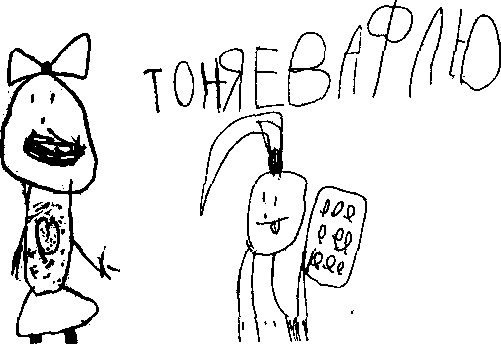 ТОНЯЕВАФЛЮ